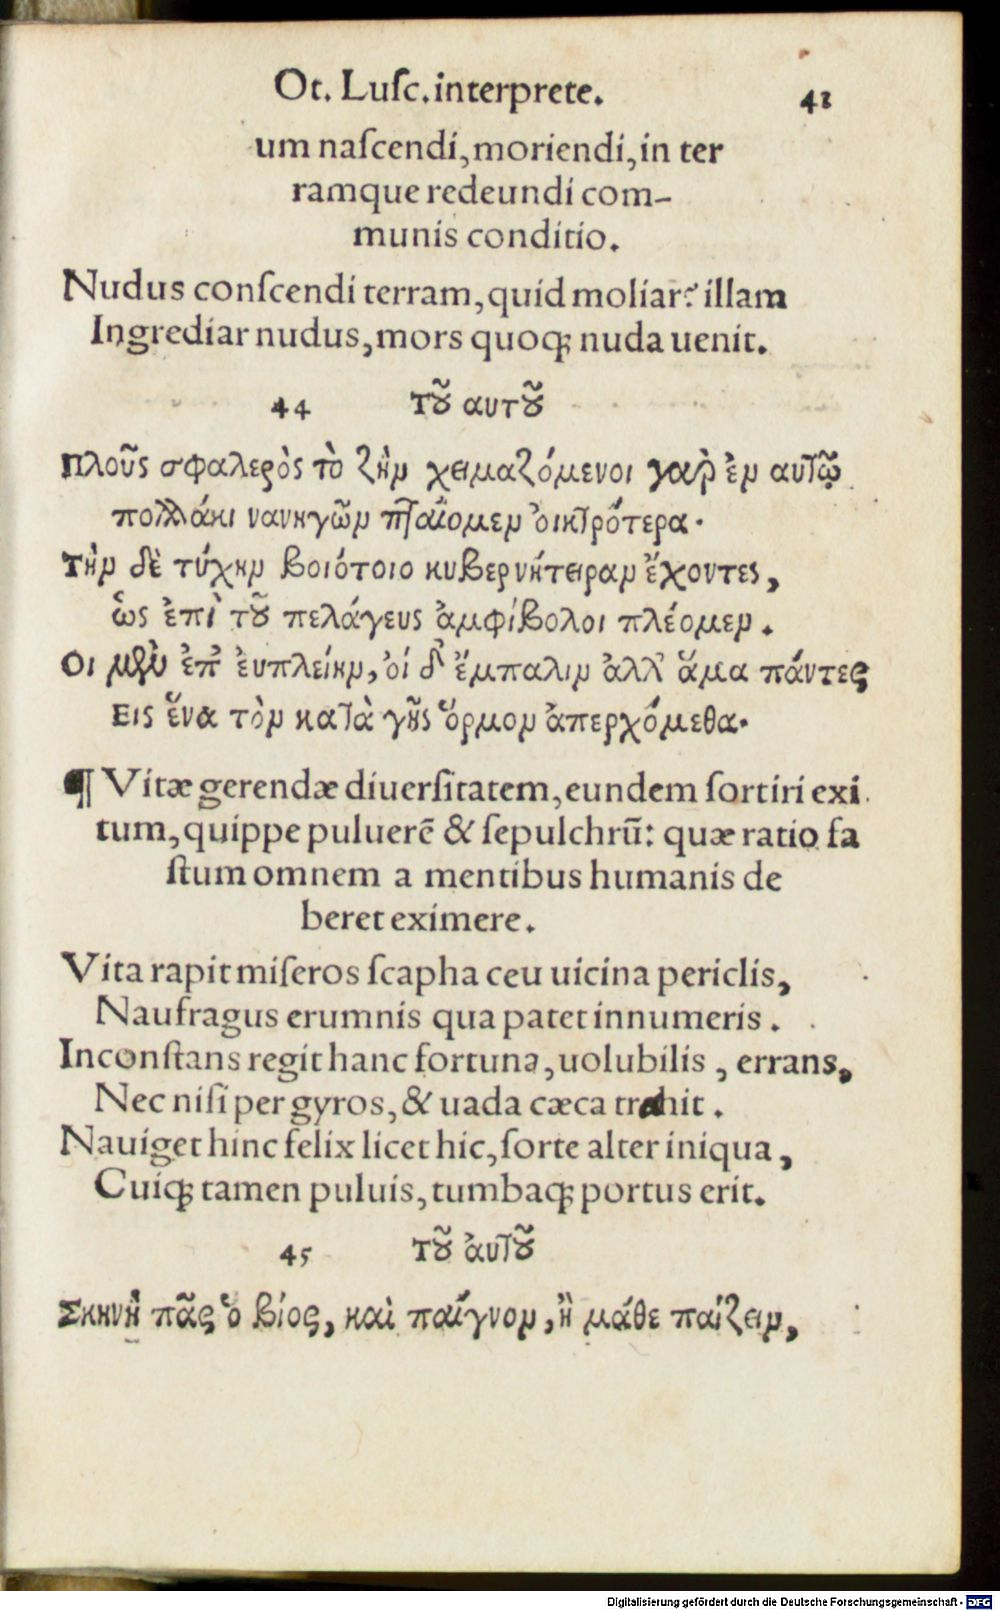 Ot. Luſc. interprete. 41
um naſcendi, moriendi, in ter
ramque redeundi com-
munis conditio.
Nudus conſcendi terram, quid moliar? illam
Ingrediar nudus, mors quoq; nuda uenit.
44 Τοῦ αυτοῦ
Πλοῦς σφαλερὸς τὸ ζῆν χειμαζόμενοι γαρ̀ ἐν αυτῷ
πολλάκι νανηγῶν πταίομεν ὀικτρότερα·
Τὴν δὲ τύχην βοιότοιο κυβερνήτειραν ἔχοντες,
ὡς ἐπὶ τοῦ πελάγευς ἀμφίβολοι πλέομεν.
Οι μὲν ἐπ' ἐυπλείην, ὁί δ' ἔμπαλιν ἀλλ' ἅμα πάντες
Εις ἕνα τὸν κατὰ γῆς ὅρμον ἀπερχόμεθα·
¶ Vitæ gerendæ diuerſitatem, eundem ſortiri exi
tum, quippe puluerẽ & ſepulchrũ: quæ ratio fa
ſtum omnem a mentibus humanis de
beret eximere.
Vita rapit miſeros ſcapha ceu uicina periclis,
Naufragus erumnis qua patet innumeris.
Inconſtans regit hanc fortuna, uolubilis, errans,
Nec niſi per gyros, & uada cæca trahit.
Nauiget hinc felix licet hic, ſorte alter iniqua,
Cuiq; tamen puluis, tumbaq; portus erit.
45 Τοῦ ἀυτοῦ
Σκηνὴ πᾶς ὁ βίος, καὶ παίγνον, ἢ μάθε παίζειν,
Digitalisierung gefördert durch die Deutsche Forschungsgemeinschaft - DFG